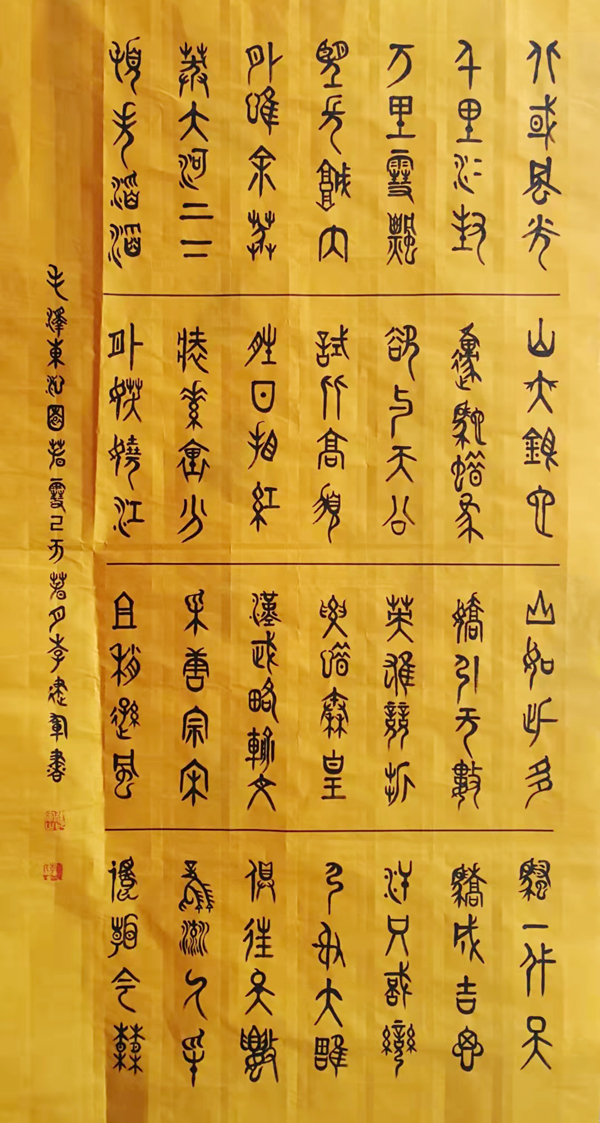 北國風光
千里冰封
万里雪飄
望長城内
外唯余莽
莽大河上下
頓失滔滔
山舞銀蛇
原馳蠟象
欲与天公
試比高須
晴日看紅
裝素裹分
外妖嬈江
山如此多
嬌引无數
英雄競折
腰惜秦皇
漢武略輸文
采唐宗宋
且稍遜風
騷一代天
驕成吉思
汗只識彎
弓射大雕
俱往矣數
風流人物
還看今朝
毛澤東沁園春雪己丑春月李建軍書